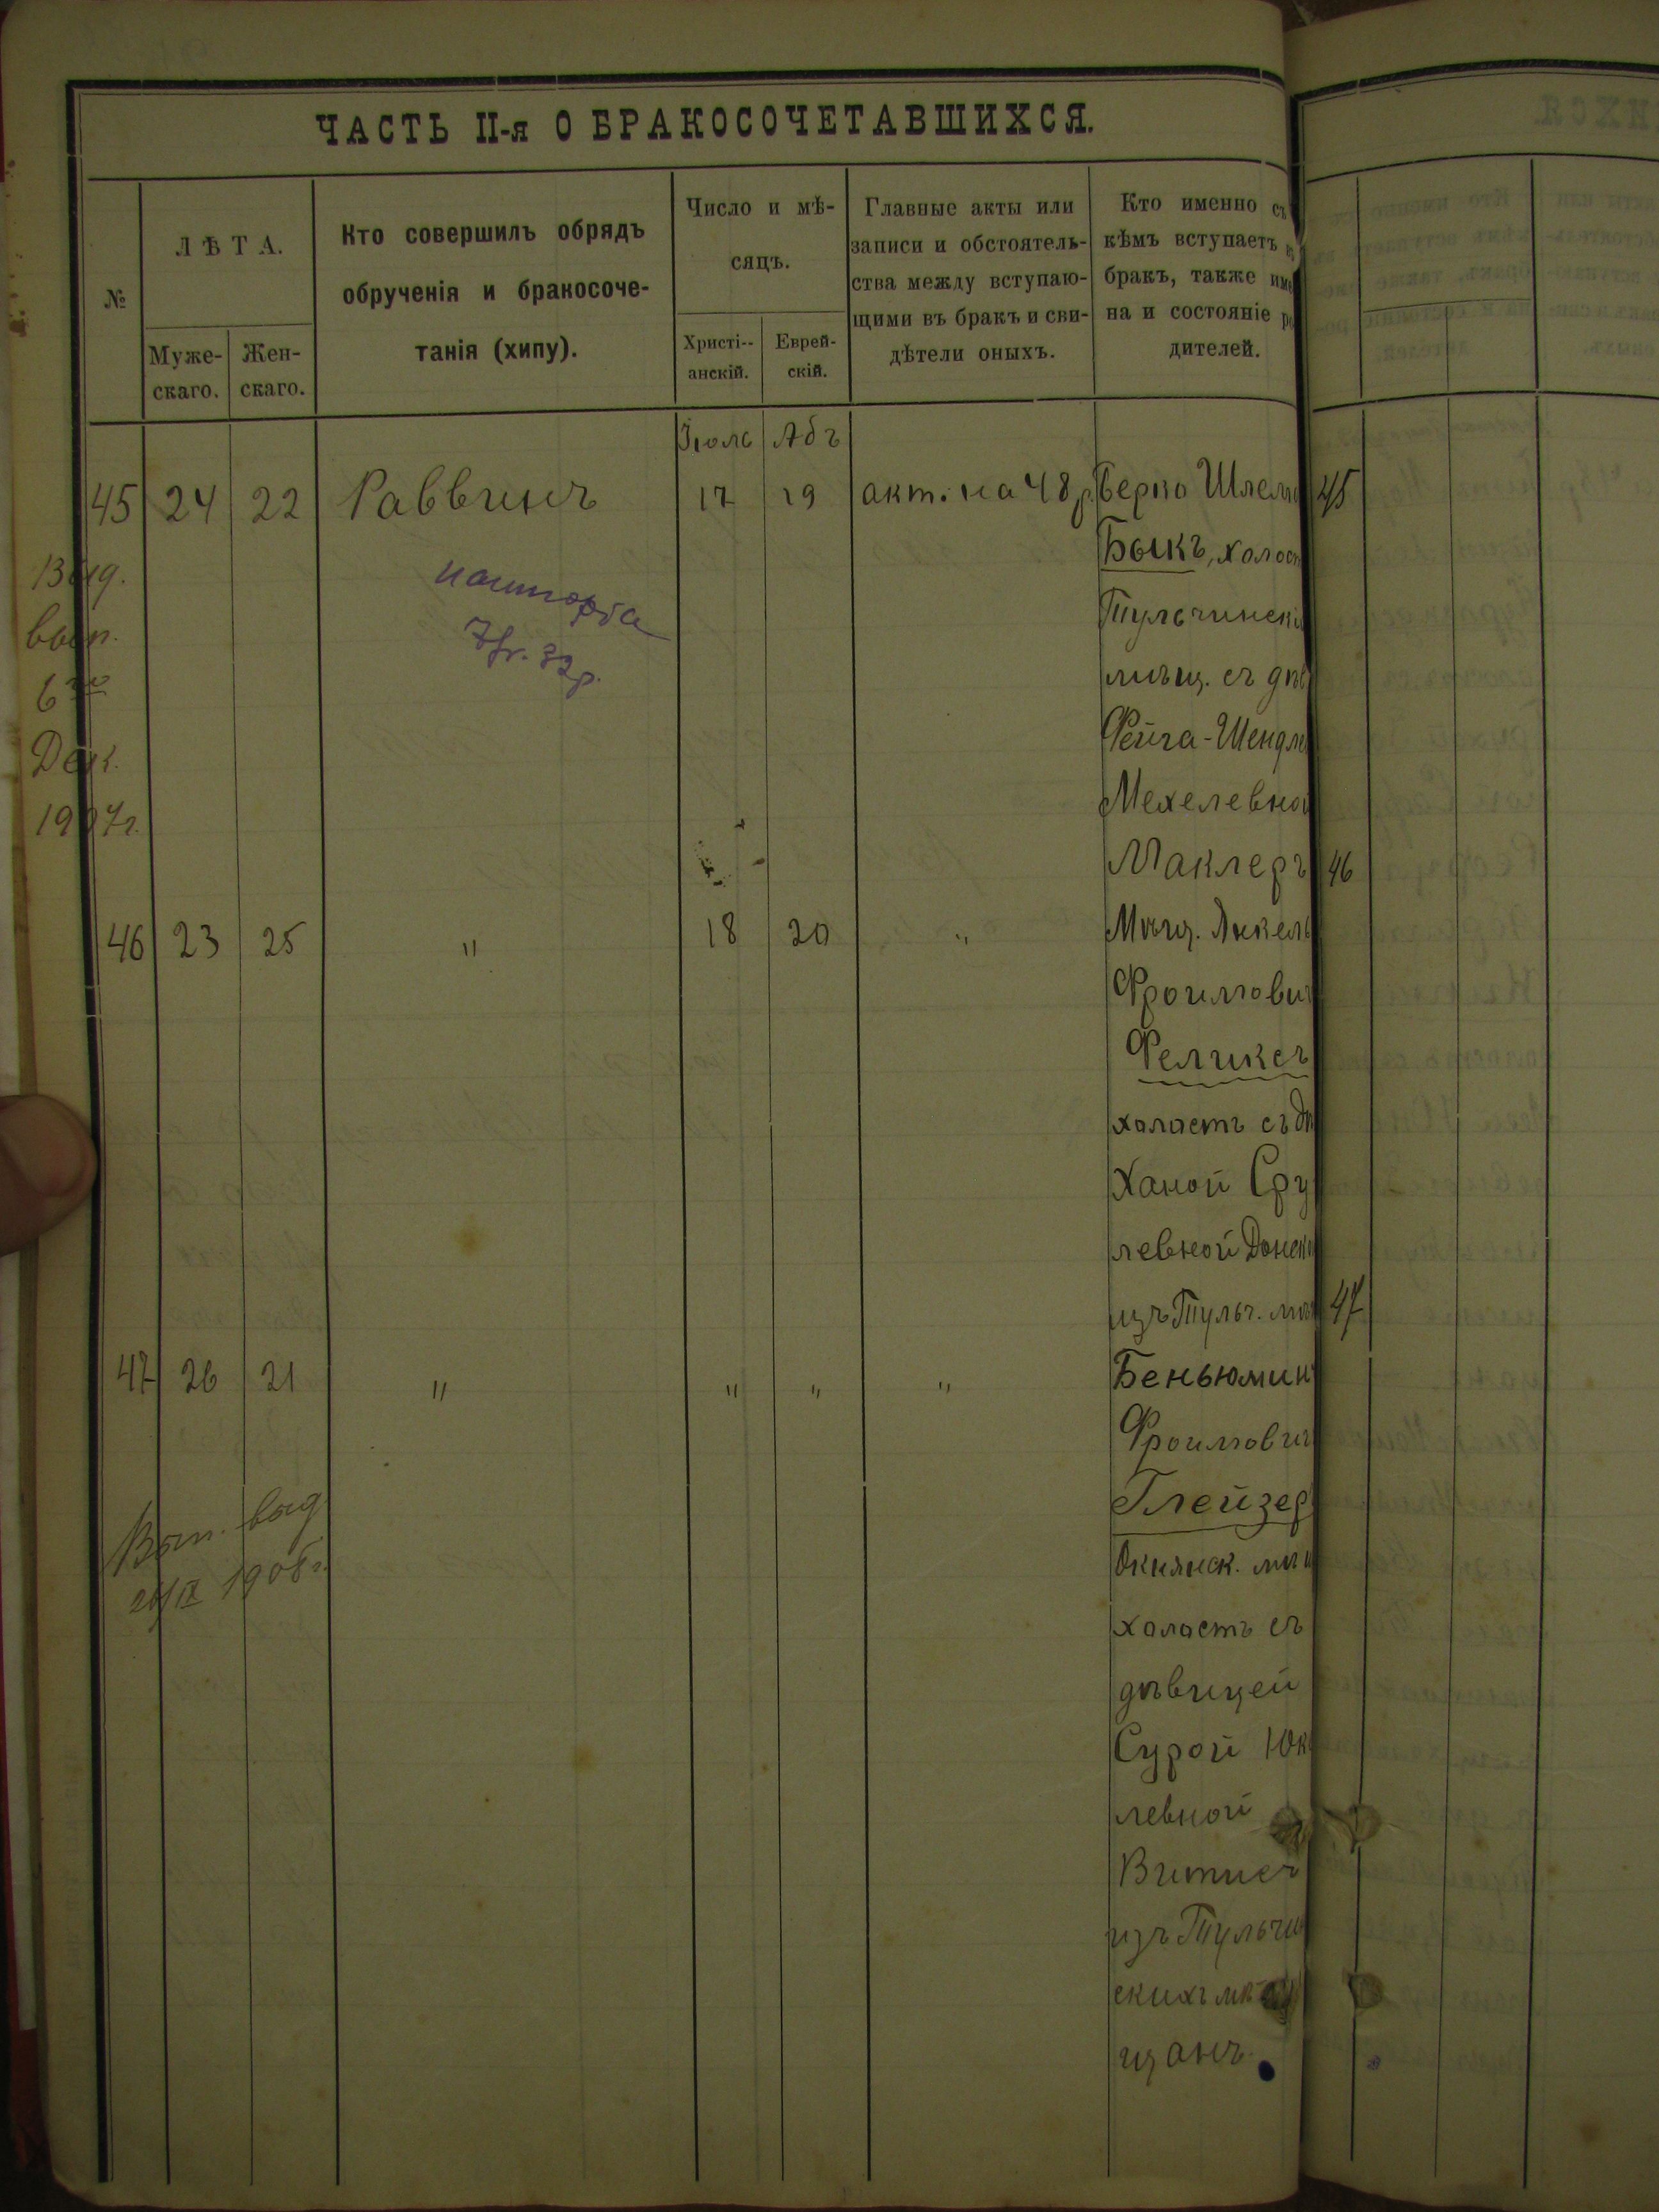 ЧАСТЬ II-я О БРАКОСОЧЕТАВШИХСЯ.
№
ЛѢТА.
Муже-
скаго.
Жен-
скаго.
Кто совершилъ обрядъ
обрученія и бракосоче-
танія (хипу).
Число и мѣ-
сяцъ.
Христі--
анскій.
Еврей-
скій.
Главные акты или
записи и обстоятель-
ства между вступаю-
щими въ бракъ и сви-
дѣтели оныхъ.
Кто именно съ
кѣмъ вступаетъ
бракъ, также име
на и состояніе ро
дителей.
Іюль Абъ
45 24 22 Раввинъ 17 19 акт. на 48 р. Берко Шлемо
Быкъ, холост
Тульчинскі
мѣщ. съ дѣв
Фейга-Шендле
Мехелевной
Маклеръ
Выд.
вып.
6го
Дек.
1907г.
46 23 25 " 18 20 " Мѣщ. Янкель
Фроимови
Феликсъ
халастъ съ дѣ
Ханой Сру
левной Донск
изъ Тульч. мѣ
47 26 21 " " " " Беньюминъ
Фроимович
Глейзер
Окнянск. мѣщ
халастъ съ
дѣвицей
Сурой Юк
левной
Витис
изъ Тульчи
скихъ мѣ
щанъ.
Вып. выд
1908г.
45
46
47